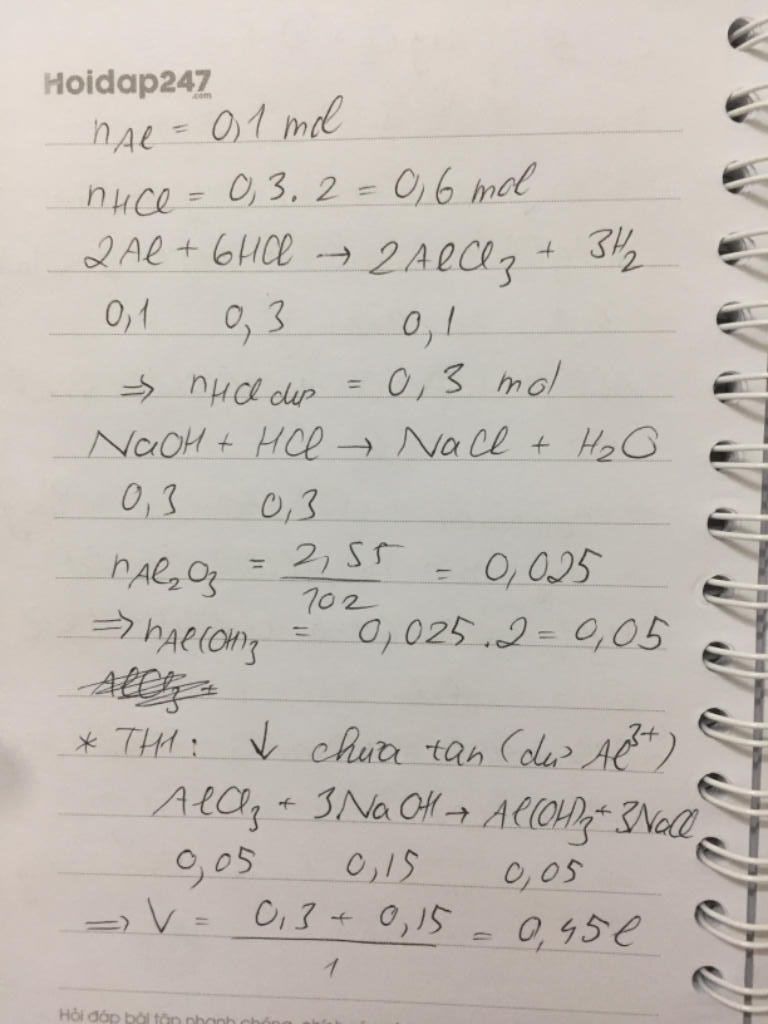 Hoidap247
.com
nAl = 0,1 mol
nHCl = 0,3. 2 = 0,6 mol
2Al + 6HCl → 2AlCl3 + 3H2
0,1 0,3 0,1
⇒ nHCl dư = 0,3 mol
NaOH + HCl → NaCl + H2O
0,3 0,3
nAl2O3 = 2,55/102 = 0,025
⇒ nAl(OH)3 = 0,025.2 = 0,05
* TH1: ↓ chưa tan (dư Al3+)
AlCl3 + 3NaOH → Al(OH)3 + 3NaCl
0,05 0,15 0,05
⇒ V = (0,3 + 0,15)/1 = 0,45l
Hỏi đáp bài tập nhanh chóng, chính